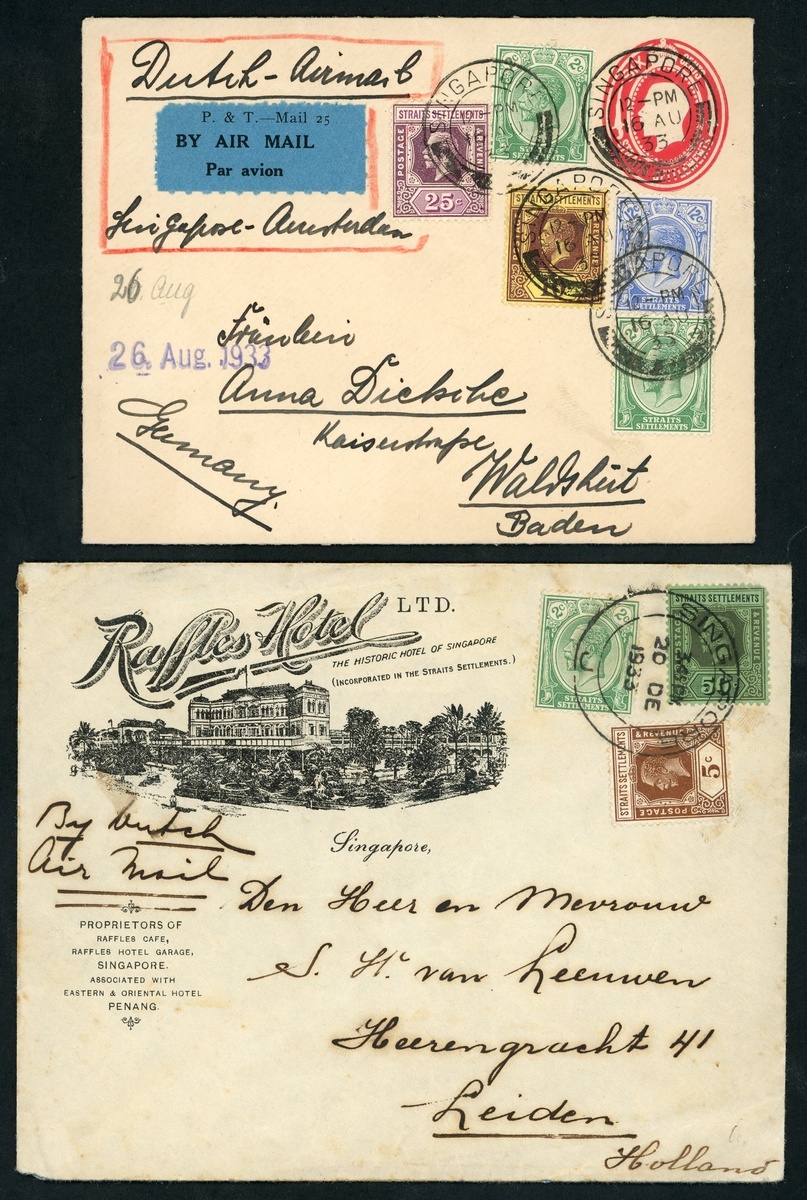 Dutch-Airmail
P. & T.—Mail 25
BY AIR MAIL
Par avion
Singapore-Amsterdam
STRAITS SETTLEMENTS
POSTAGE
& REVENUE
25c
2c
STRAITS
SETTLEMENTS
SINGAPORE
PM
SINGAPORE
12-PM
16 AU
33
STRAITS SETTLEMENTS
SINGAPORE
12- PM
16 AU
12c 12c
STRAITS
SETTLEMENTS
SINGAPORE
PM
16 AU
33
2c
STRAITS
SETTLEMENTS
26. Aug
26. Aug. 1933
Fräulein
Anna Dicksche
Kaiserstraße
Waldshut
Baden
Germany
Raffles Hotel LTD.
THE HISTORIC HOTEL OF SINGAPORE
(INCORPORATED IN THE STRAITS SETTLEMENTS.)
2c 2c
STRAITS
SETTLEMENTS
STRAITS SETTLEMENTS
& REVENUE
20 DE
1933
STRAITS SETTLEMENTS
& REVENUE
POSTAGE
5c
Singapore,
By Dutch
Air Mail
PROPRIETORS OF
RAFFLES CAFE,
RAFFLES HOTEL GARAGE,
SINGAPORE.
ASSOCIATED WITH
EASTERN & ORIENTAL HOTEL
PENANG.
Den Heer en Mevrouw
S. Hr. van Leeuwen
Heerengracht 41
Leiden
Holland